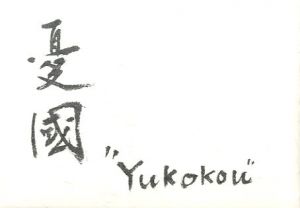 憂國
"Yukokou"